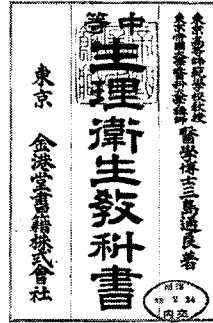 東京高等師範學校教授
東京帝國大學醫科大學講師
醫學博士三島通良著
中等
生理衛生教科書
東京 金港堂書籍株式會社
內交